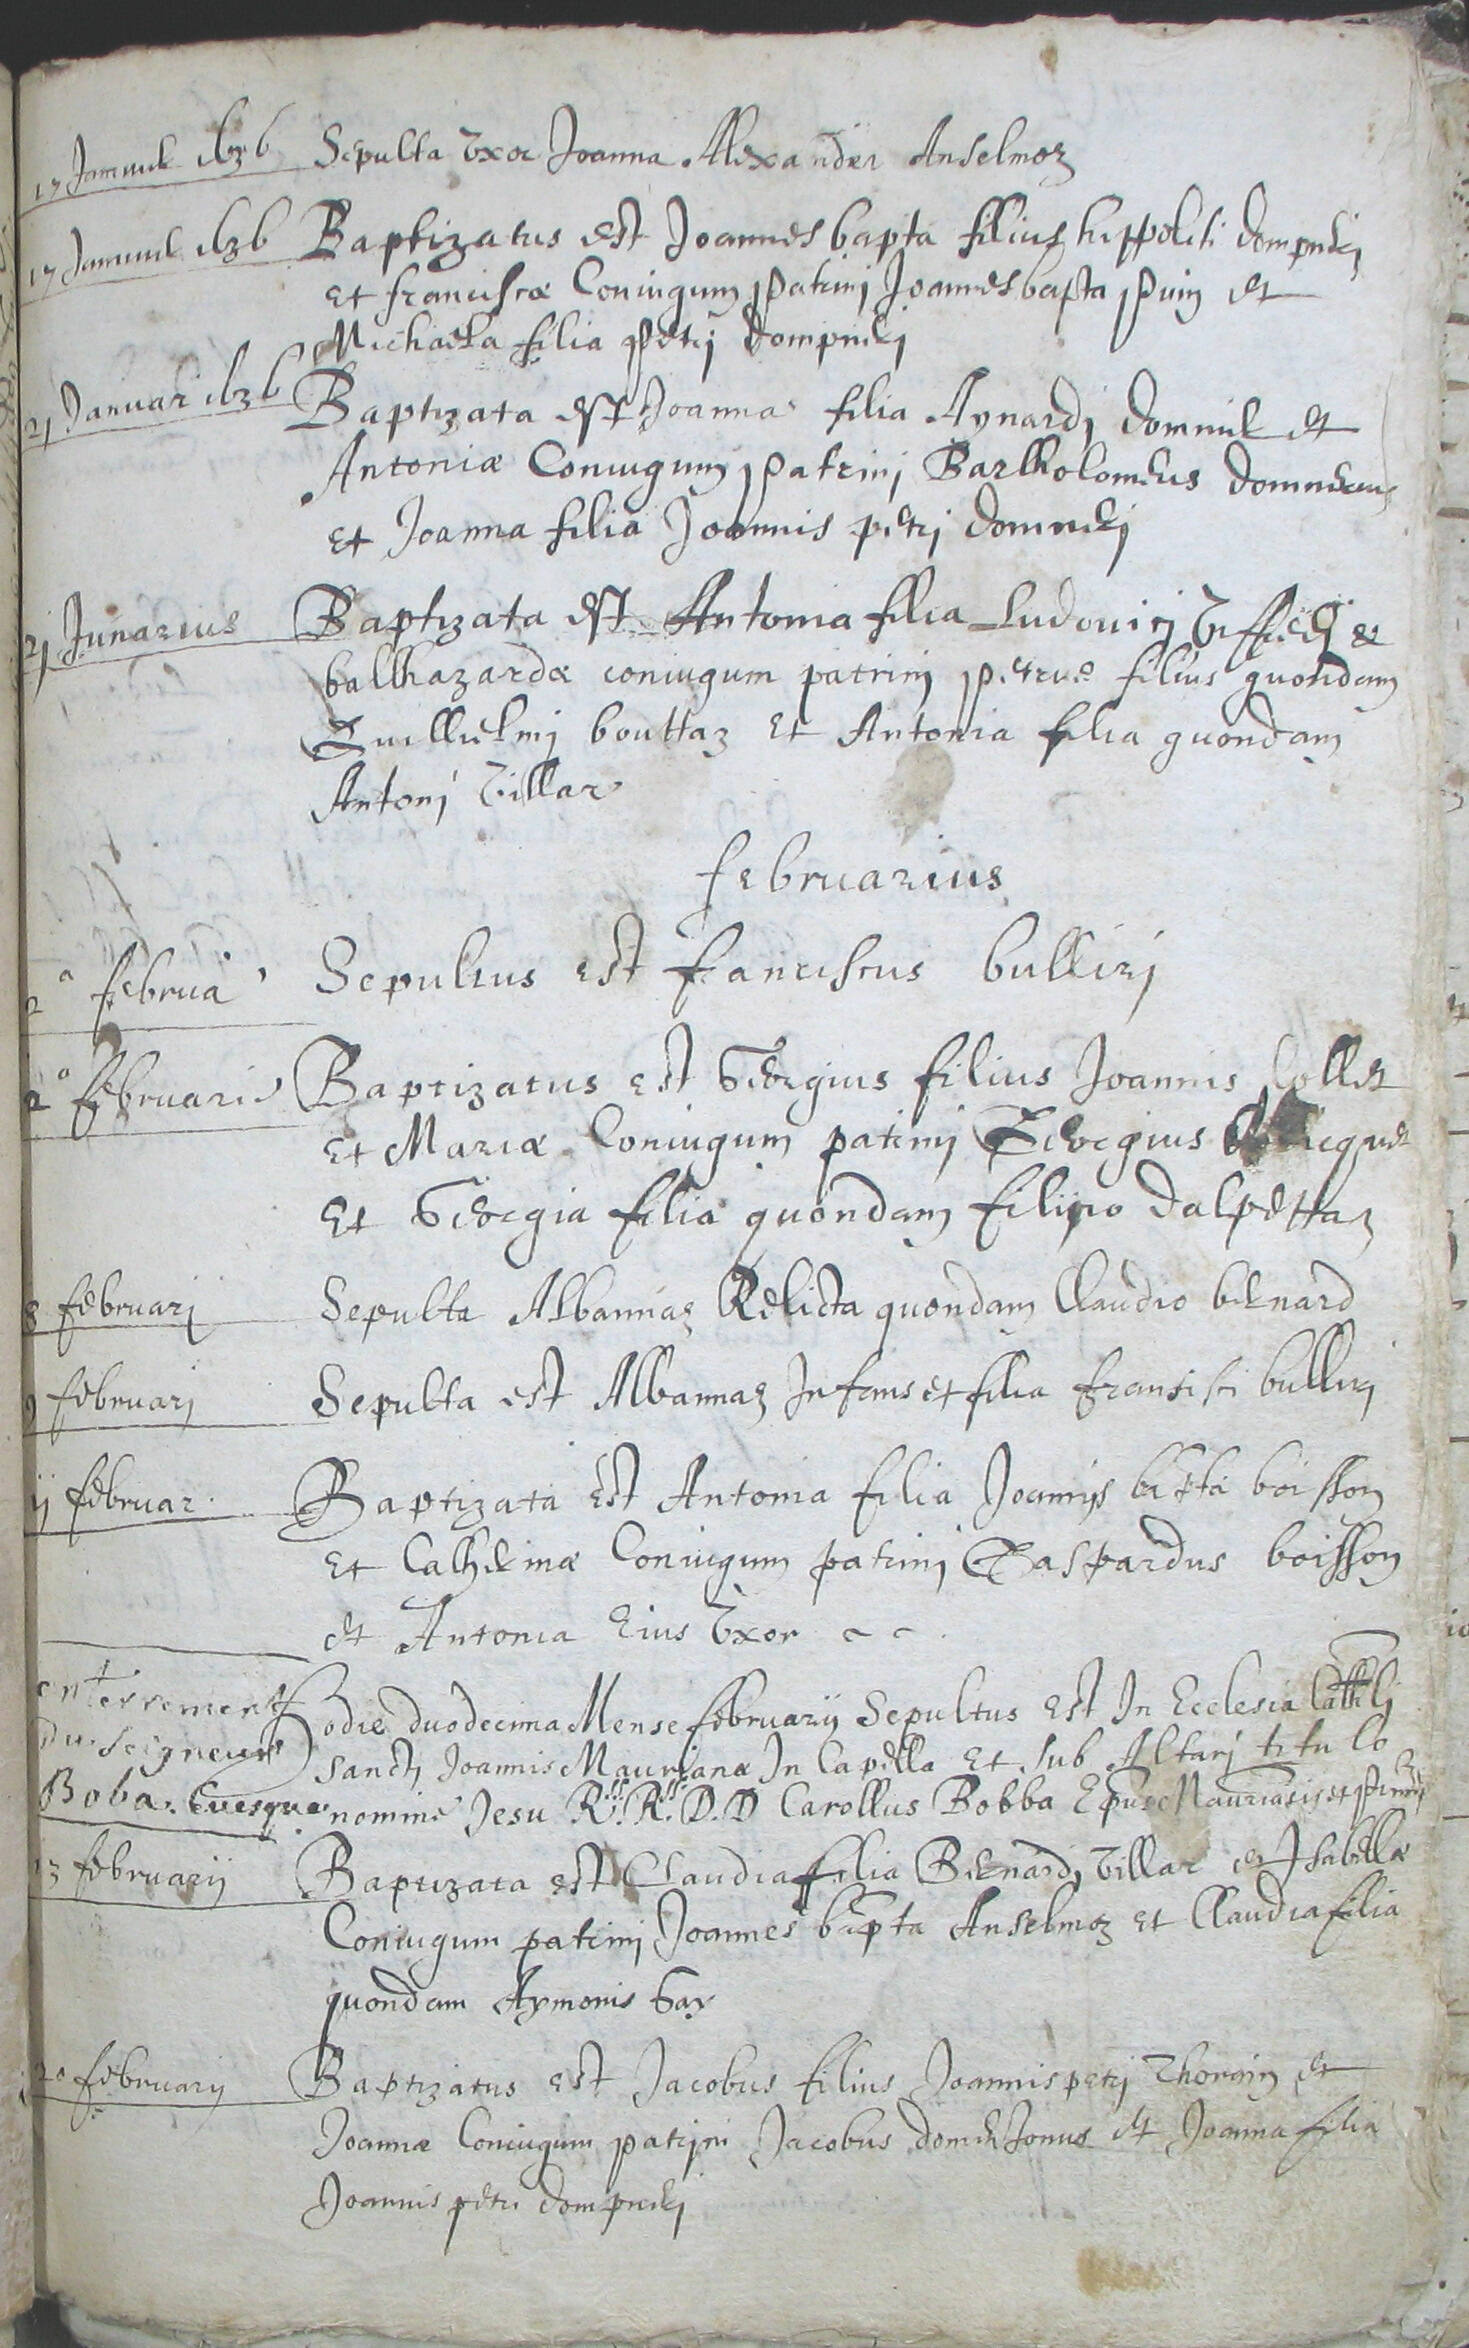 17 Januarii 1636 Sepulta Uxor Joanna Alexander Anselmoz
17 Januarii 1636 Baptizatus est Joannes bapta filius hippoliti dompnici
et franciscæ Coniugum patrini Joannes bapta et
Michaela filia petri dompnici
21 Januari 1636 Baptizata est Joanna filia Aynardi et
Antoniæ Coniugum patrini Bartholomeus
et Joanna filia Joannis petri
21 Junarius Baptizata est Antonia filia Ludovici &
balthazardæ coniugum patrini petrus filius quondam
Guillielmi bouttaz et Antonia filia quondam
Antonj Villar
februarius
2a februa Sepultus est fanciscus bullirj
2a februarii Baptizatus est Georgius filius Joannis Collet
et Mariæ Coniugum patrini Georgius
et Georgia filia quondam filipio dalpettaz
8 februarj Sepulta Albannaz Relicta quondam Claudio bernard
9 februarj Sepulta est Albannaz Infans et filia fransisci bullirj
ij februar. Baptizata est Antonia filia Joannis bapta boisson
et Catherinæ Coniugum patrini Gaspardus boisson
et Antonia Eius Uxor
enterrement Hodie duodecima Mense februarij Sepultus est In Ecclesia
du Seigneur Sancti Joannis Maurianæ In Capella et sub Altarj titulo
Boba Evesque nomine Jesu R.R.D.D Carollus Bobba Epus
13 februarij Baptizata est Claudia filia Bernardj Villar et Isabellæ
Coniugum patrini Joannes bapta Anselmoz et Claudia filia
quondam Aymonis Gay
20 februarij Baptizatus est Jacobus filius Joannis petrj Thomin et
Joannæ Coniugum patrini Jacobus et Joanna filia
Joannis petri dompnicj